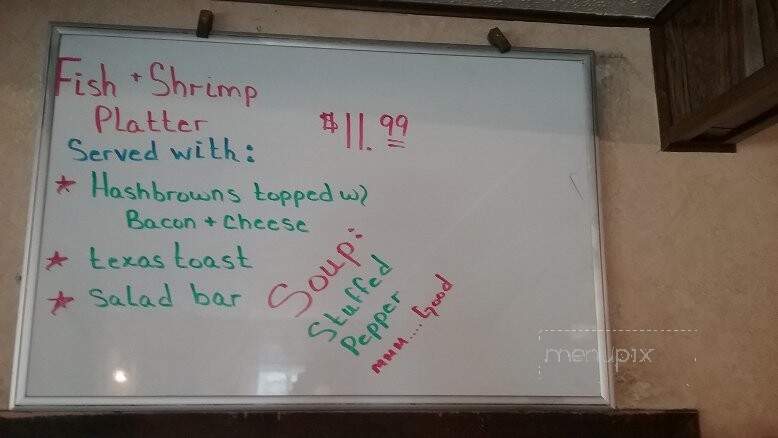 Fish + Shrimp
Platter
$11.99
Served with:
* Hashbrowns topped w/
Bacon + cheese
* texas toast
* salad bar
Soup:
Stuffed
Pepper
mmm....Good
menupix